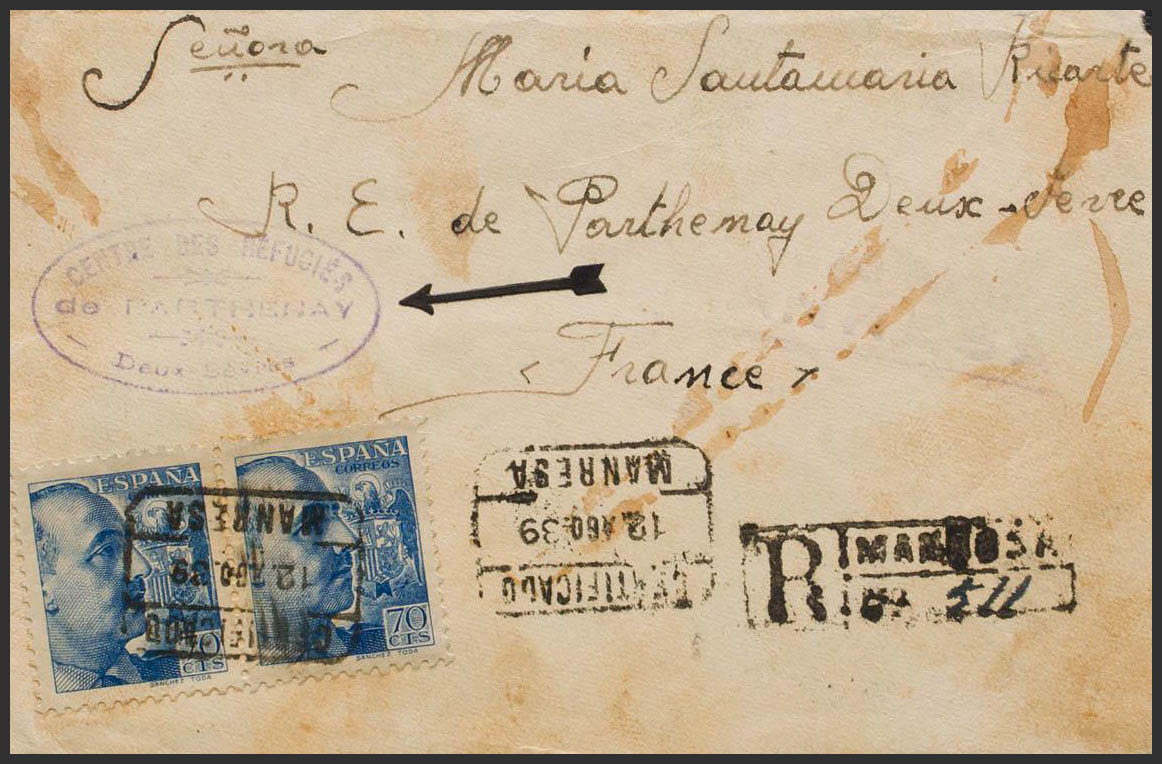 Señora María Santamaria Ricarte
R. E. de Parthenay Deux-Sevre
CENTRE DES REFUGIÉS
de PARTHENAY
Deux-Sèvres
France
ESPAÑA
ESPAÑA
CORREOS
MANRESA
12.AGO.39
CERTIFICADO
70
CTS
SANCHEZ TODA
70
CTS
SANCHEZ TODA
MANRESA
12.AGO.39
CERTIFICADO
R MANRESA
511